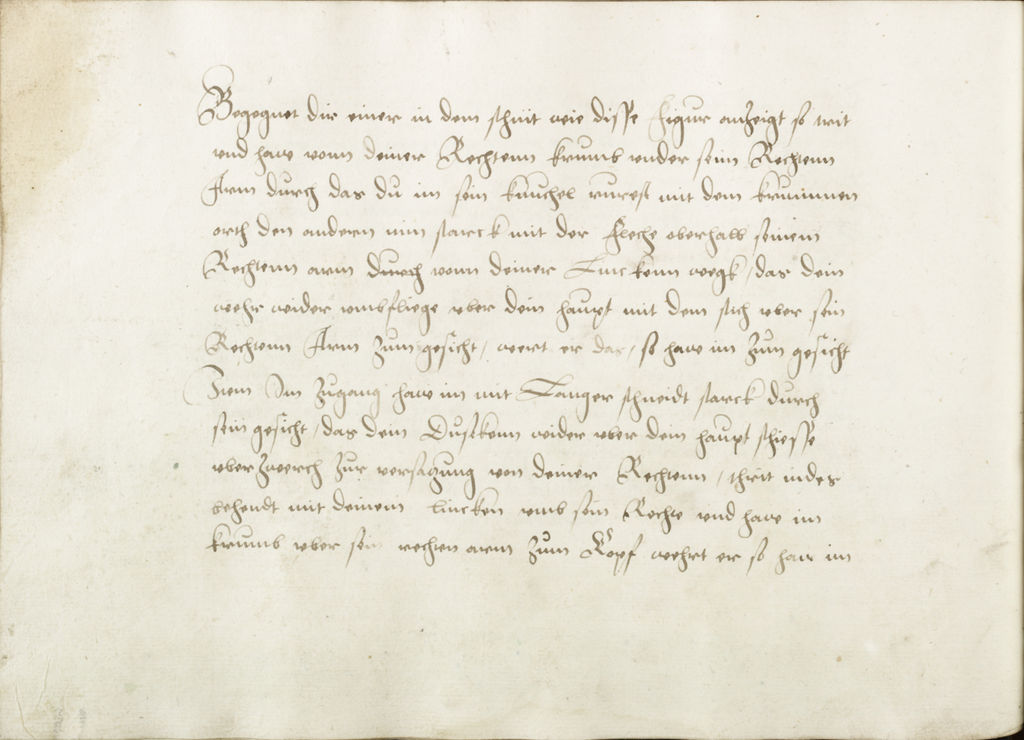 Begegnet dir einer in dem schnit wie disse figur anzeigt so trit
vnd haw vonn deiner Rechtenn krumb vnder seim Rechtenn
Arm durch das du im sein knuchel rurest mit dem krummen
orth den andern nim starck mit der fleche oberhalb seinem
Rechtenn arm durch vonn deiner Linckenn wegk / das dein
wehr wider vmbfliege vber dein haupt mit dem stich vber sein
Rechtenn Arm zum gesicht / wert er das / so haw im zum gesicht
Item Im zugang haw im mit Langer schneidt starck durch
sein gesicht / das dein Dusekenn wider vber dein haupt schiesse
vberzwerch zur versatzung von deiner Rechtenn / thrit indes
behendt mit deinem lincken vmb sein Rechte vnd haw im
krumb vber sein rechten arm zum Kopf wehrt er so haw im